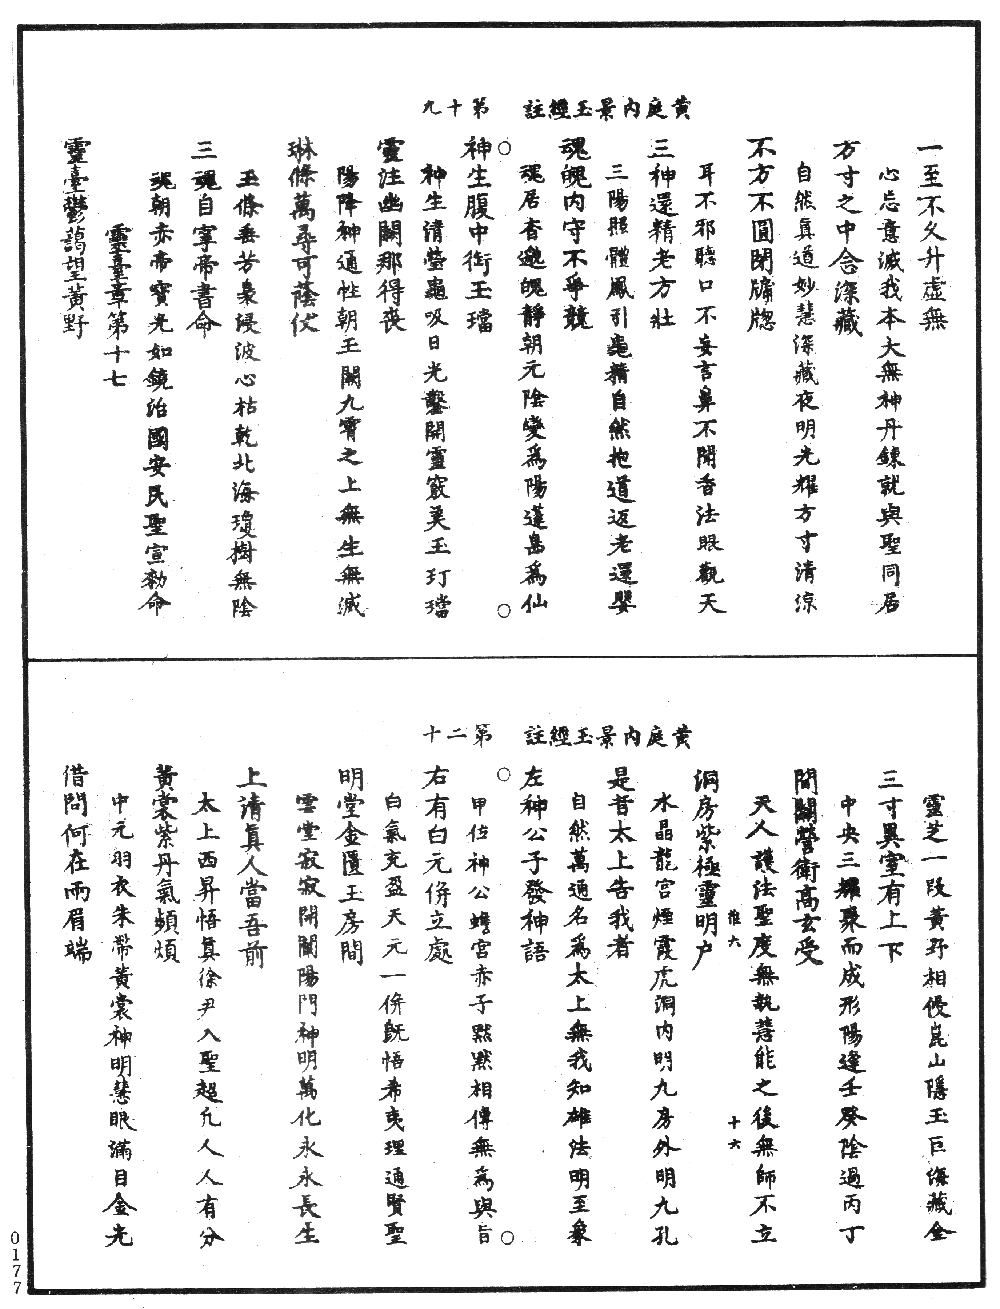 黃庭內景玉經註　第十九
一至不久升虛無
心忘意滅我本大無神丹鍊就與聖同居
方寸之中念深藏
自然真道妙慧深藏夜明光耀方寸清涼
不方不圓閉牖牕
耳不邪聽口不妄言鼻不聞香法眼觀天
三神還精老方壯
三陽照體鳳引龜精自然抱道返老還嬰
魂魄內守不爭競
魂居杳邈魄靜朝元陰變為陽蓬島為仙
神生腹中銜玉璫
神生清瑩龜吸日光鑿開靈竅美玉玎璫
靈注幽闕那得喪
陽降神通性朝玉闕九霄之上無生無滅
琳條萬尋可蔭仗
玉條垂芳裊浸波心枯乾北海瓊樹無陰
三魂自寧帝書命
魂朝赤帝寶光如鏡治國安民聖宣勑命
靈臺章第十七
靈臺鬱藹望黃野
黃庭內景玉經註　第二十
靈芝一段黃野相侵崑山隱玉巨海藏金
三寸異室有上下
中央三耀聚而成形陽逢壬癸陰過丙丁
間關營衛高玄受
天人護法聖度無執善能之後無師不立
洞房紫極靈明戶
水晶龍宮煙霞虎洞內明九房外明九孔
是昔太上告我者
自然萬通名為太上無我知雄法明至象
左神公子發神語
甲位神公蟾宮赤子默默相傳無為與旨
右有白元併立處
白氣充盈天元一併既悟希夷理通賢聖
明堂金匱玉房間
雲堂寂寂開闡陽門神明萬化永永長生
上清真人當吾前
太上西昇悟真徐尹入聖超凡人人有分
黃裳紫丹氣頻煩
中元羽衣朱帶黃裳神明慧眼滿目金光
借問何在兩眉端
推六
十六
0177